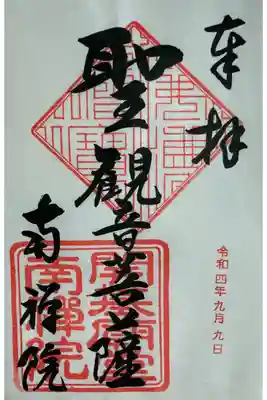 奉拝
令和四年九月九日
聖觀音菩薩
南禅院
南禪院